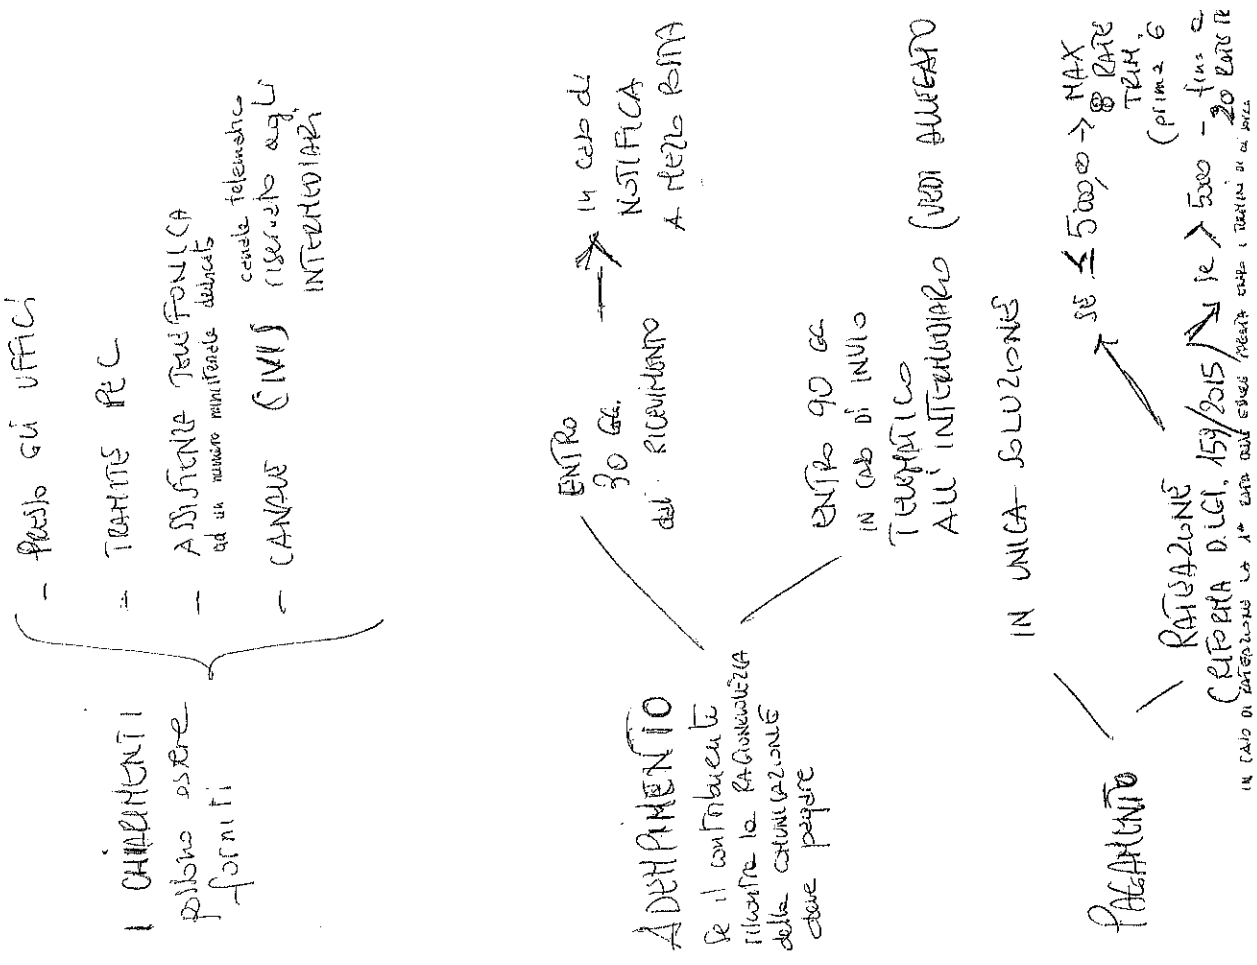 I CHIARIMENTI
possono essere
forniti
- PRESSO GLI UFFICI
- TRAMITE PEC
- ASSISTENZA TELEFONICA
ad un numero ministeriale dedicato
- CANALE CIVIS
canale telematico
riservato agli
INTERMEDIARI
ADEMPIMENTO
Se il contribuente
riscontra la RAGIONEVOLEZZA
della COMUNICAZIONE
deve pagare
ENTRO
30 GG.
dal RICEVIMENTO
in caso di
NOTIFICA
A MEZZO POSTA
ENTRO 90 GG.
IN CASO DI INVIO
TELEMATICO
ALL'INTERMEDIARIO (VEDI ALLEGATO
PAGAMENTO
IN UNICA SOLUZIONE
RATEAZIONE
(RIFORMA D.LGS. 159/2015)
SE ≤ 5000,00 → MAX
8 RATE
TRIM.
(prima 6
se > 5000 - fino a
20 RATE TR
IN CASO DI RATEAZIONE LA 1ª RATA DEVE ESSERE PAGATA ENTRO I TERMINI DI CUI SOPRA